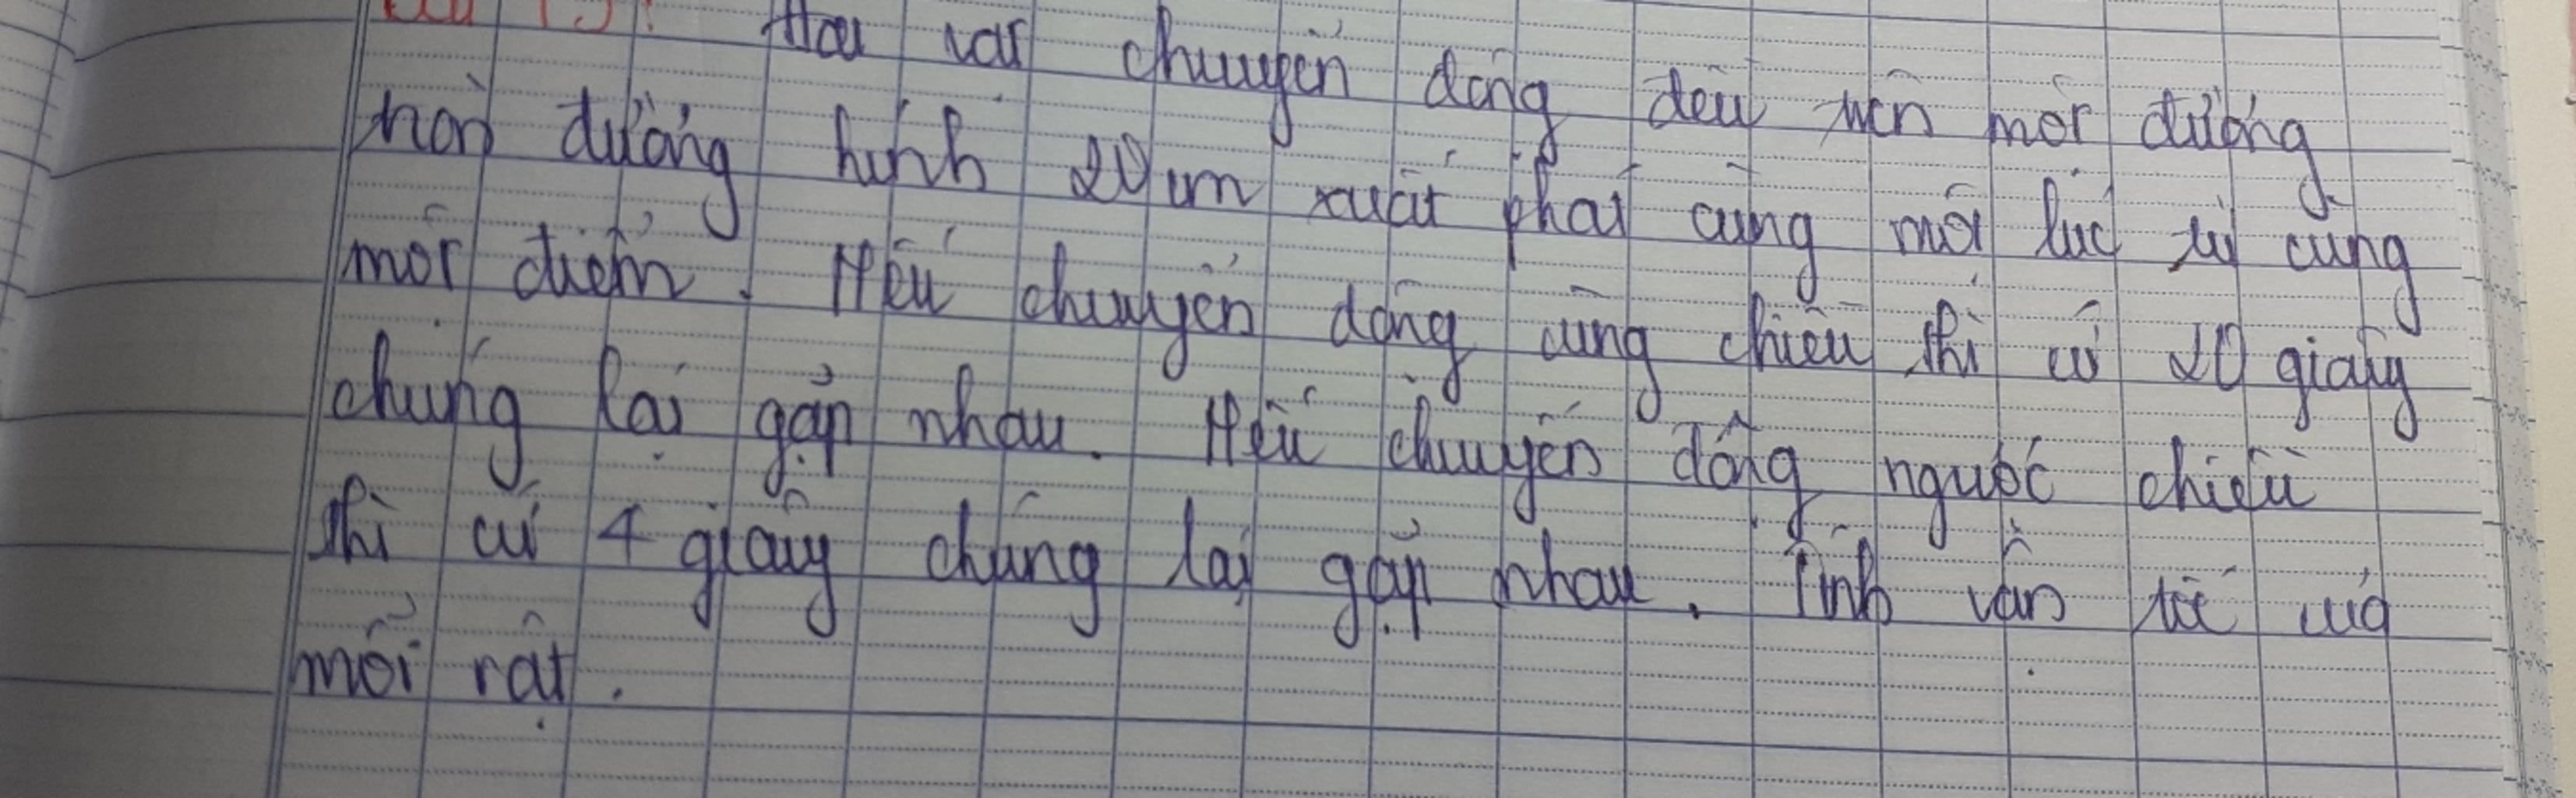 Hai vật chuyển động đều trên một đường
tròn đường kính 20cm xuất phát cùng một lúc từ cùng
một điểm. Nếu chuyển động cùng chiều thì cứ 20 giây
chúng lại gặp nhau. Nếu chuyển động ngược chiều
thì cứ 4 giây chúng lại gặp nhau. Tính vận tốc của
mỗi vật.